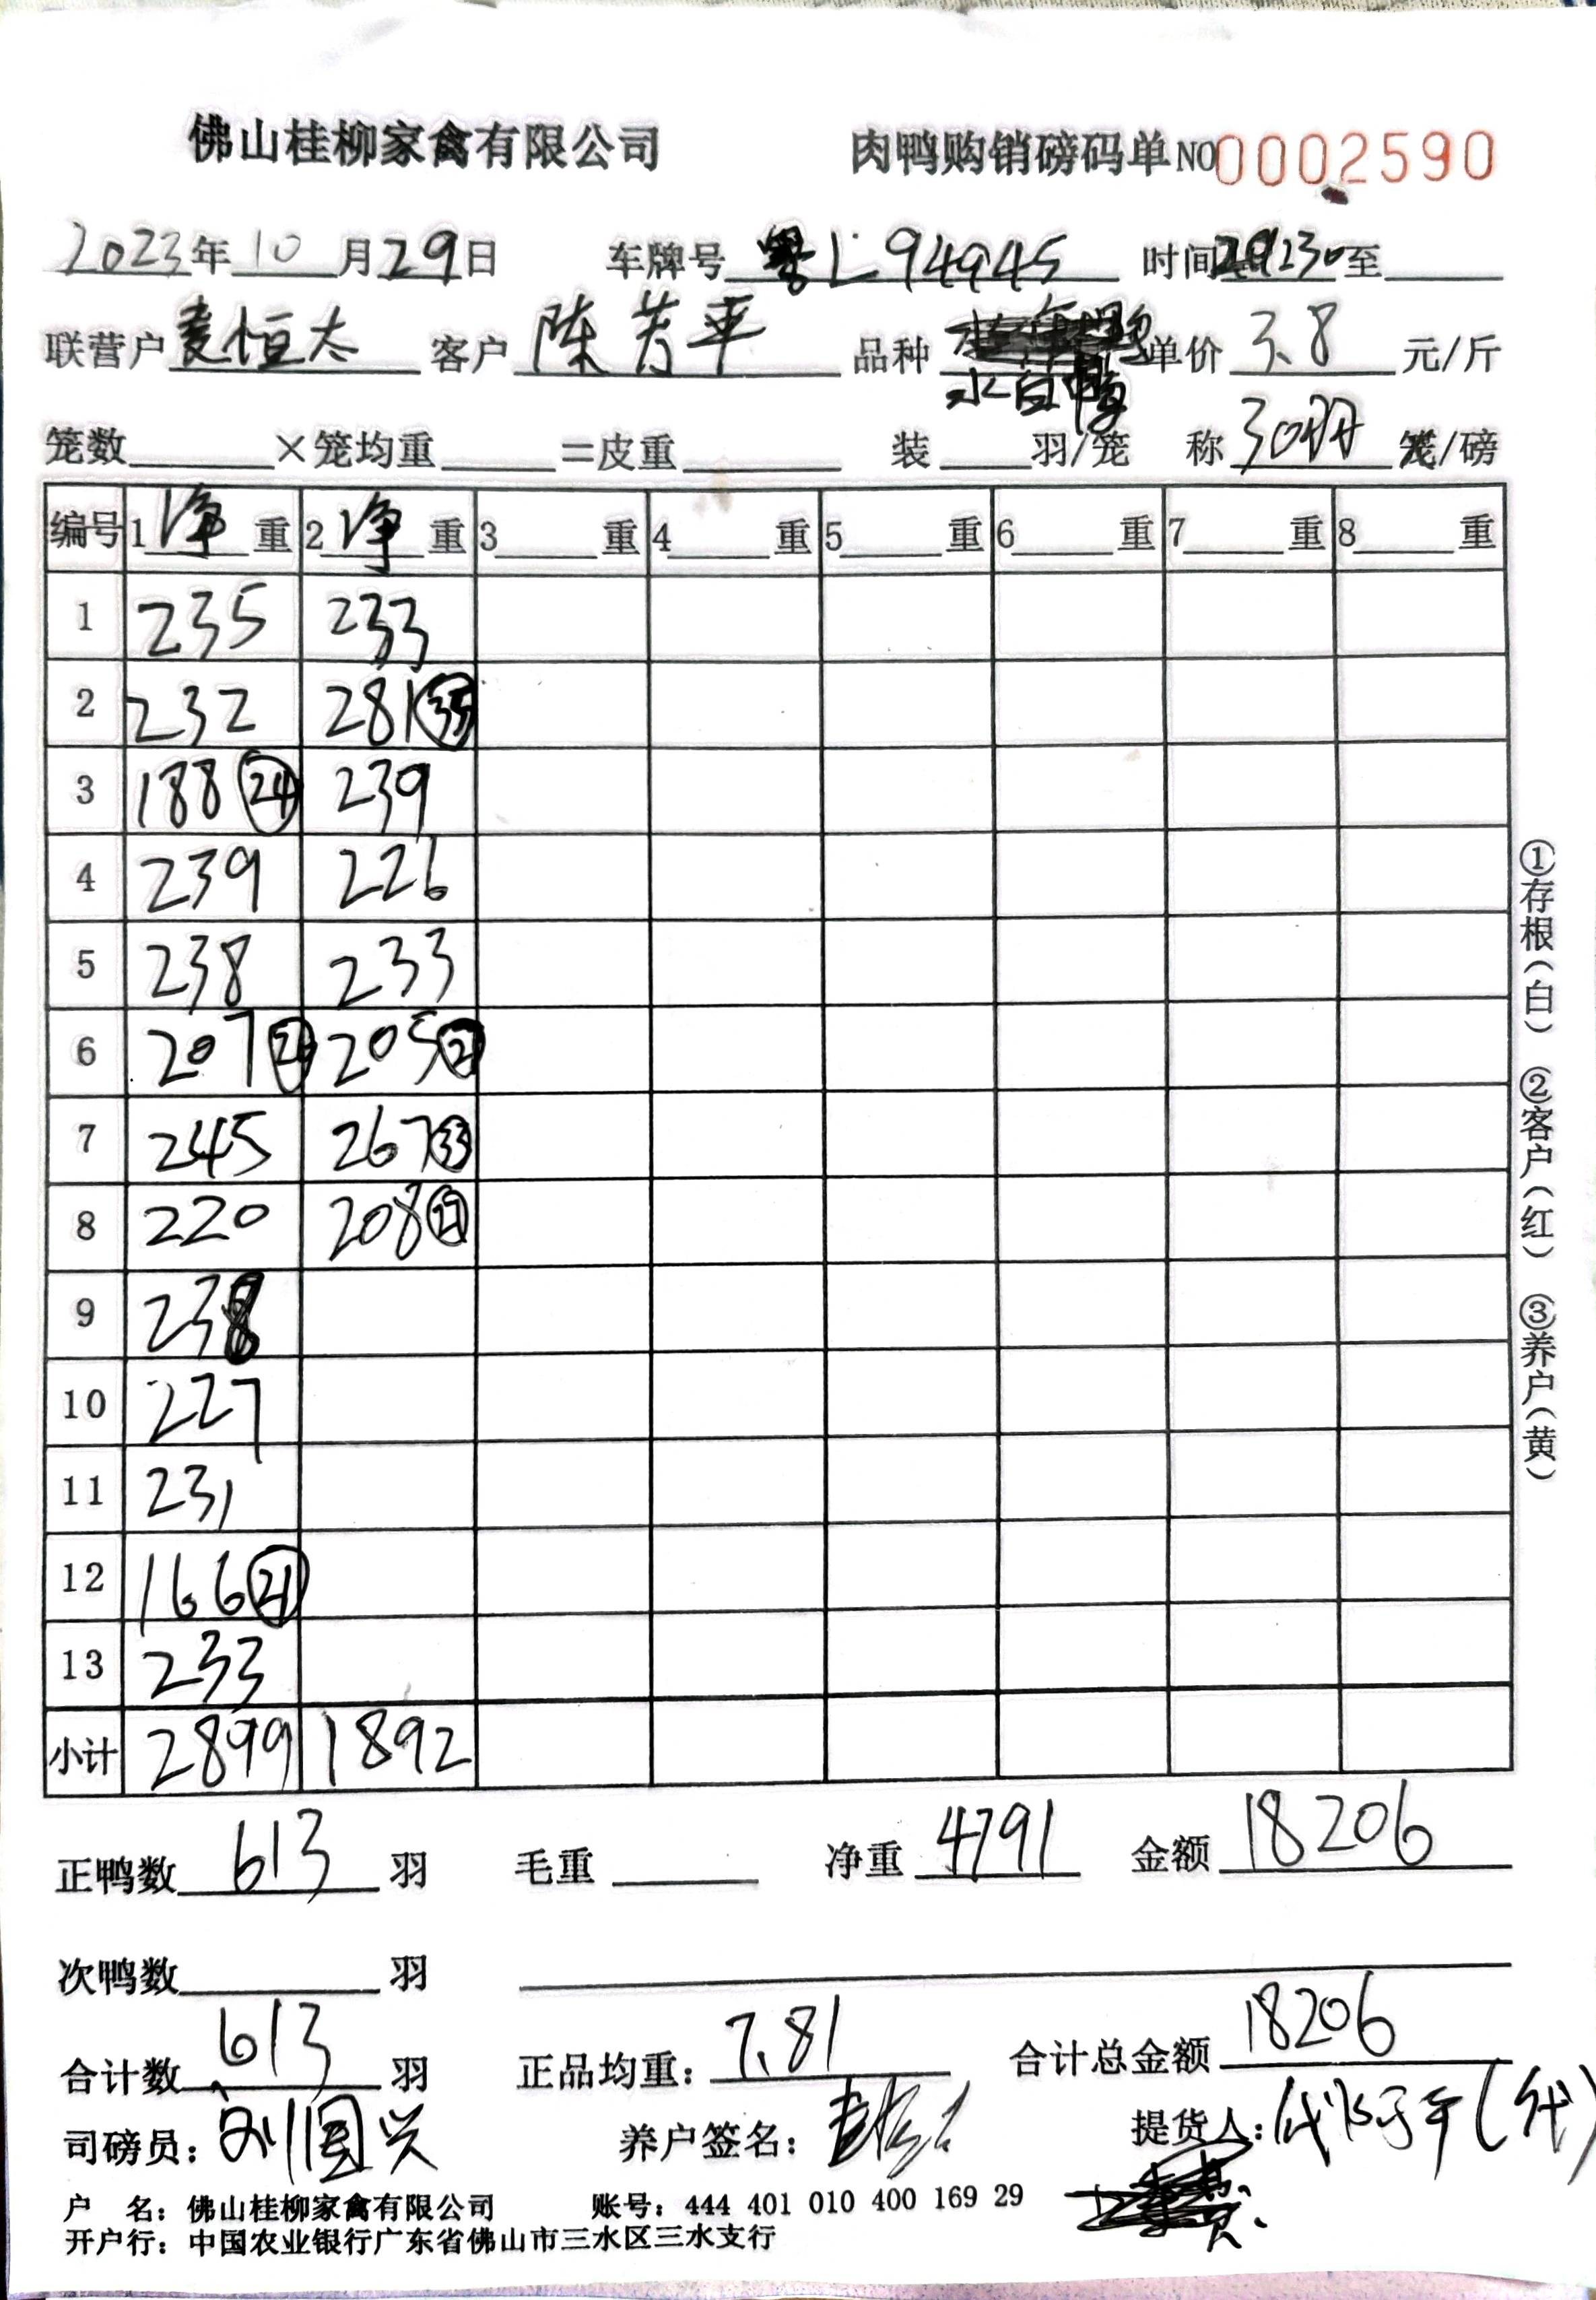 佛山桂柳家禽有限公司 肉鸭购销磅码单NO0002590
2023年10月29日 车牌号 粤L94945 时间 至
联营户 麦恒太 客户 陈芳平 品种 水白鸭 单价 3.8 元/斤
笼数 ×笼均重 =皮重 装 羽/笼 称 30羽 笼/磅
编号 1 净 重 2 净 重 3 重 4 重 5 重 6 重 7 重 8 重
1 235 233
2 232 281 (35)
3 188 (24) 239
4 239 226
5 238 233
6 207 205
7 245 267 (33)
8 220 208 (27)
9 238
10 227
11 231
12 166 (21)
13 233
小计 2899 1892
正鸭数 613 羽 毛重 净重 4791 金额 18206
次鸭数 羽
合计数 613 羽 正品均重: 7.81 合计总金额 18206
司磅员: 刘国兴 养户签名: 提货人: (代)
户 名: 佛山桂柳家禽有限公司 账号: 444 401 010 400 169 29
开户行: 中国农业银行广东省佛山市三水区三水支行
①存根(白) ②客户(红) ③养户(黄)